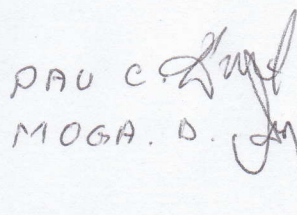 PAU C.
MOGA. D.